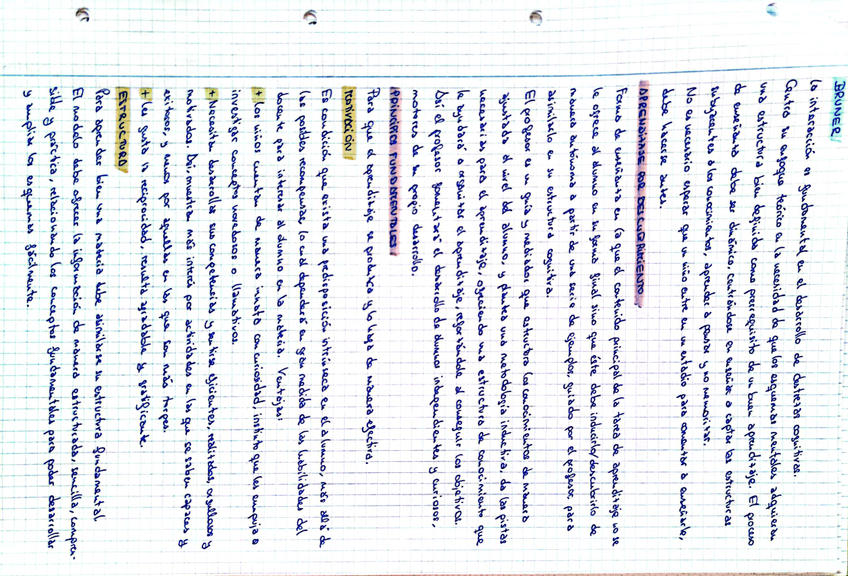 BRUNER
La interacción es fundamental en el desarrollo de destrezas cognitivas.
Centra su enfoque teórico en la necesidad de que los esquemas mentales adquieran
una estructura bien definida como prerrequisito de un buen aprendizaje. El proceso
de enseñanza debe ser dinámico, centrándose en enseñar a captar las estructuras
subyacentes a los conocimientos, aprender a pensar y no memorizar.
No es necesario esperar que un niño entre en un estadio para comenzar a enseñarle,
debe hacerse antes.
APRENDIZAJE POR DESCUBRIMIENTO
Forma de enseñanza en la que el contenido principal de la tarea de aprendizaje no se
le ofrece al alumno en su forma final sino que éste debe inducirlo/descubrirlo de
manera autónoma a partir de una serie de ejemplos, guiado por el profesor, para
asimilarlo en su estructura cognitiva.
El profesor es un guía y mediador que estructura los conocimientos de manera
ajustada al nivel del alumno, y plantea una metodología inductiva, da las pistas
necesarias para el aprendizaje, ofreciendo una estructura de conocimiento que
le ayudará a organizar el aprendizaje, reforzándole al conseguir los objetivos.
Así el profesor fomentará el desarrollo de alumnos independientes y curiosos,
motores de su propio desarrollo.
PRINCIPIOS FUNDAMENTALES
Para que el aprendizaje se produzca y lo haga de manera efectiva.
MOTIVACIÓN
Es condición que exista una predisposición intrínseca en el alumno, más allá de
las posibles recompensas, lo cual dependerá en gran medida de las habilidades del
docente para interesar al alumno en la materia. Ventajas:
+ Los niños cuentan de manera innata con curiosidad, instinto que les empuja a
investigar conceptos novedosos o llamativos.
+ Necesitan desarrollar sus competencias y sentirse eficientes, realizados, orgullosos y
motivados. Así, muestran más interés por actividades en las que se saben capaces y
exitosos, y menos por aquellas en las que son más torpes.
+ Les gusta la reciprocidad, resulta agradable y gratificante.
ESTRUCTURA
Para aprender bien una materia debe asimilarse su estructura fundamental
El modelo debe ofrecer la información de manera estructurada, sencilla, compren-
sible y práctica, relacionando los conceptos fundamentales para poder desarrollar
y ampliar los esquemas fácilmente.